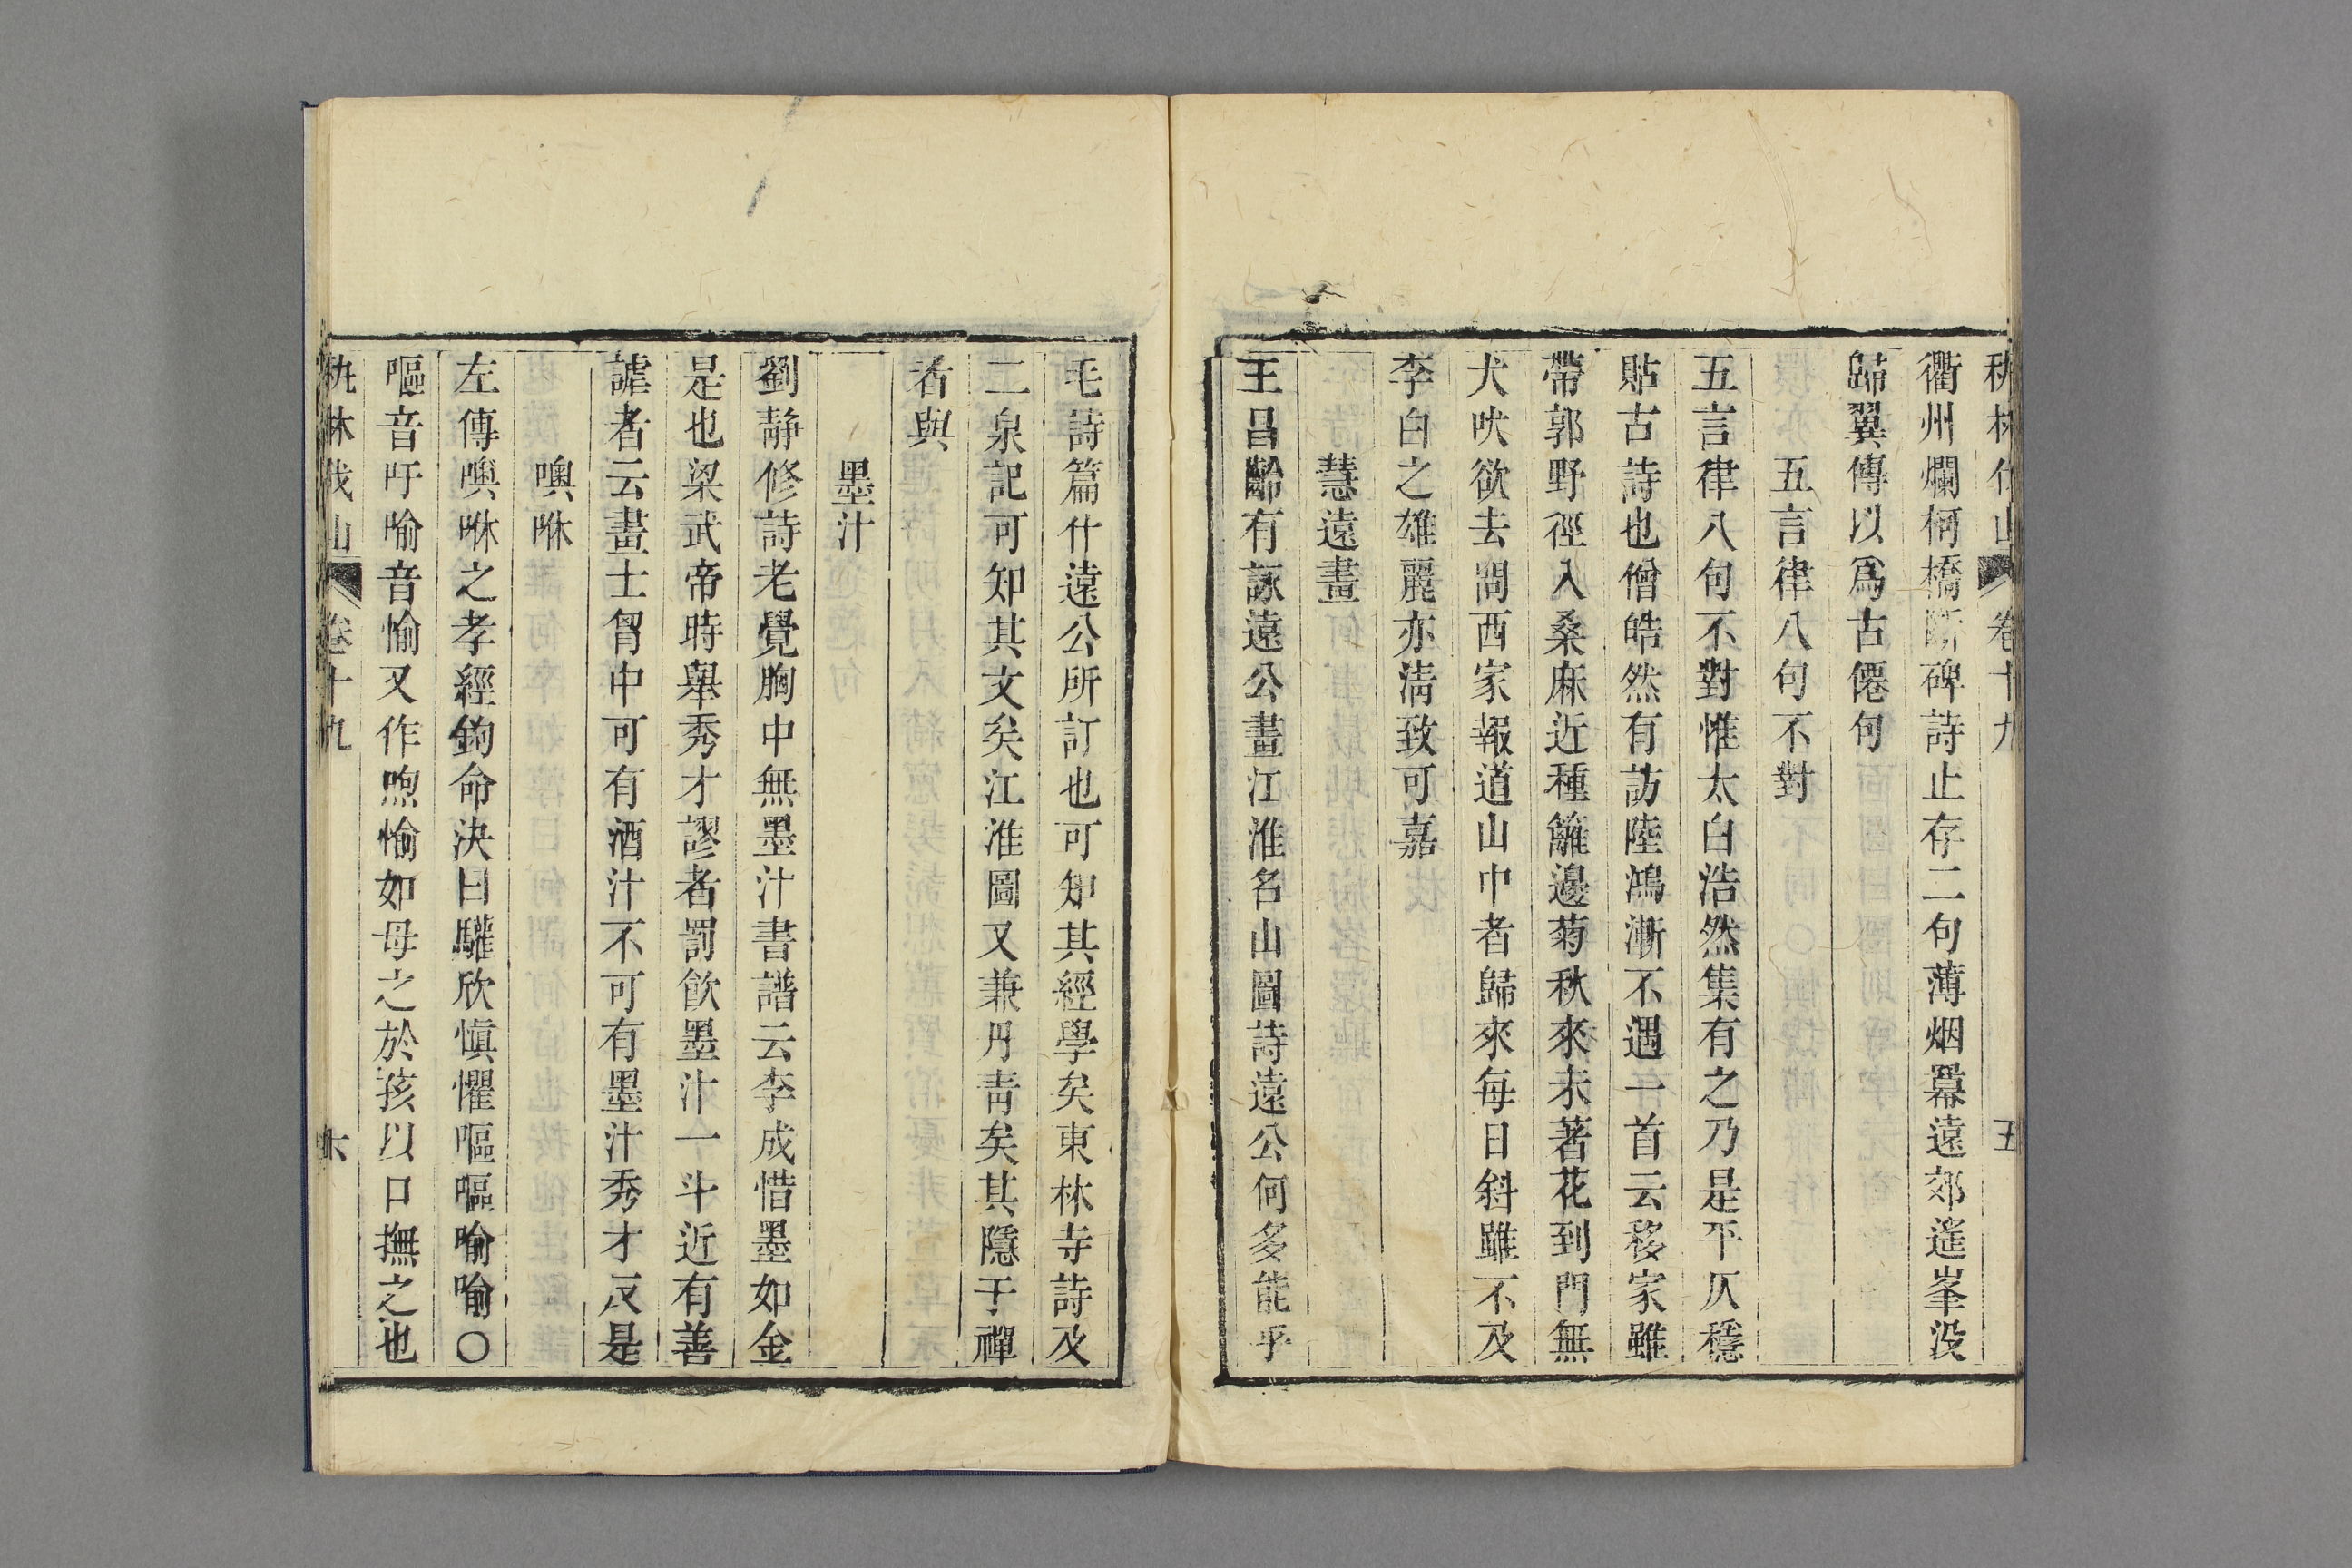 秇林伐山 卷十九 五
衢州爛柯橋斷碑詩止存二句薄烟羃遠郊遙峯没
歸翼傳以爲古僊句
五言律八句不對
五言律八句不對惟太白浩然集有之乃是平仄穩
貼古詩也僧皓然有訪陸鴻漸不遇一首云移家雖
帶郭野徑入桑麻近種籬邊菊秋來未著花到門無
犬吠欲去問西家報道山中者歸來每日斜雖不及
李白之雄麗亦淸致可嘉
慧遠畫
王昌齡有詠遠公畫江淮名山圖詩遠公何多能乎
毛詩篇什遠公所訂也可知其經學矣東林寺詩及
二泉記可知其文矣江淮圖又兼丹青矣其隱于禪
者與
墨汁
劉静修詩老覺胸中無墨汁書譜云李成惜墨如金
是也梁武帝時舉秀才謬者罰飲墨汁一斗近有善
謔者云畫士胷中可有酒汁不可有墨汁秀才反是
噢咻
左傳噢咻之孝經鉤命決曰驩欣愼懼嘔嘔喻喻〇
嘔音吁喻音愉又作喣愉如母之於孩以口撫之也
秇林伐山 卷十九 六